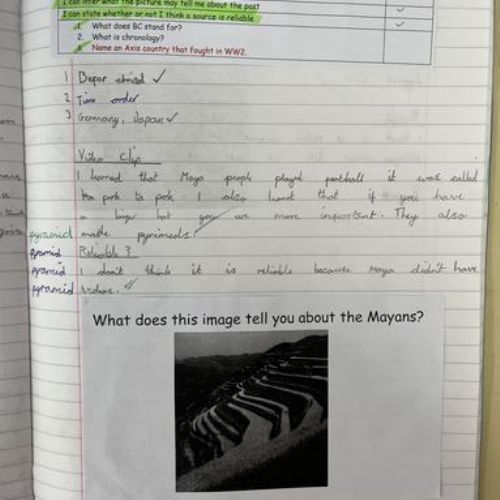 I can infer what the picture may tell me about the past
I can state whether or not I think a source is reliable
1. What does BC stand for?
2. What is chronology?
3. Name an Axis country that fought in WW2.
1 Befor
2 Time order
3 Germany, Japan
Video Clip
I learned that Maya people playd football it was called
pok ta pok I also that if you have
a hat you are more important. They also
pyramid made pyrimeds.
pyramid Reliable?
pyramid I don't think it is reliable because maya didn't have
pyramid videos.
What does this image tell you about the Mayans?